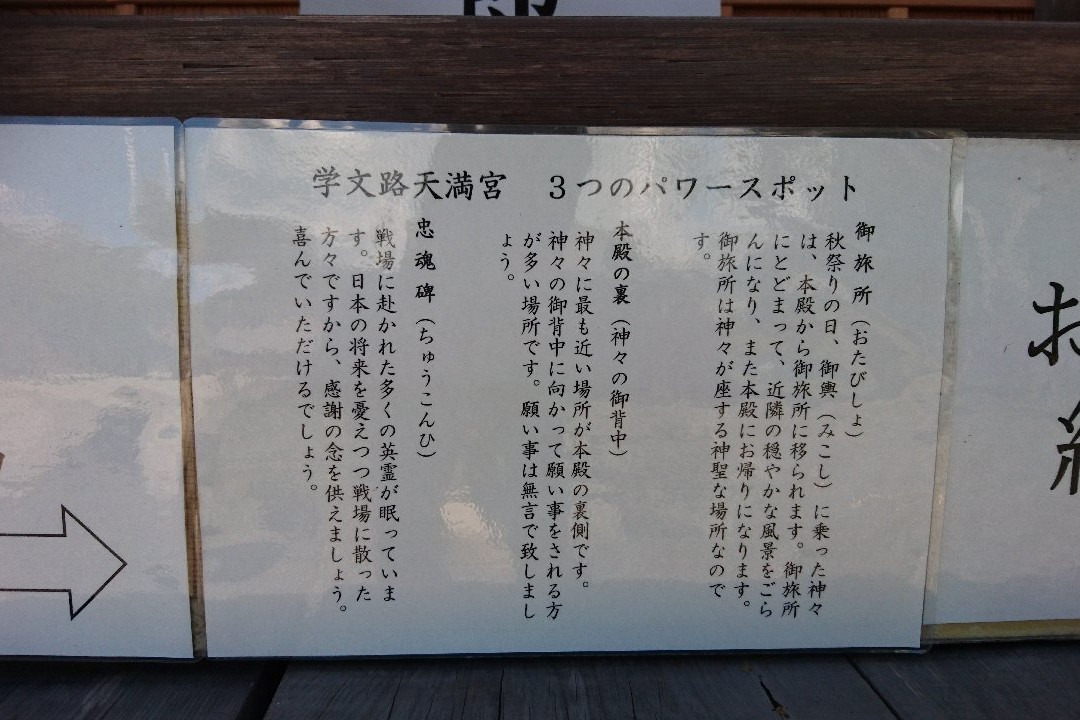 学文路天満宮　３つのパワースポット
御旅所（おたびしょ）
秋祭りの日、御輿（みこし）に乗った神々
は、本殿から御旅所に移られます。御旅所
にとどまって、近隣の穏やかな風景をごら
んになり、また本殿にお帰りになります。
御旅所は神々が座する神聖な場所なので
す。
本殿の裏（神々の御背中）
神々に最も近い場所が本殿の裏側です。
神々の御背中に向かって願い事をされる方
が多い場所です。願い事は無言で致しまし
ょう。
忠魂碑（ちゅうこんひ）
戦場に赴かれた多くの英霊が眠っていま
す。日本の将来を憂えつつ戦場に散った
方々ですから、感謝の念を供えましょう。
喜んでいただけるでしょう。